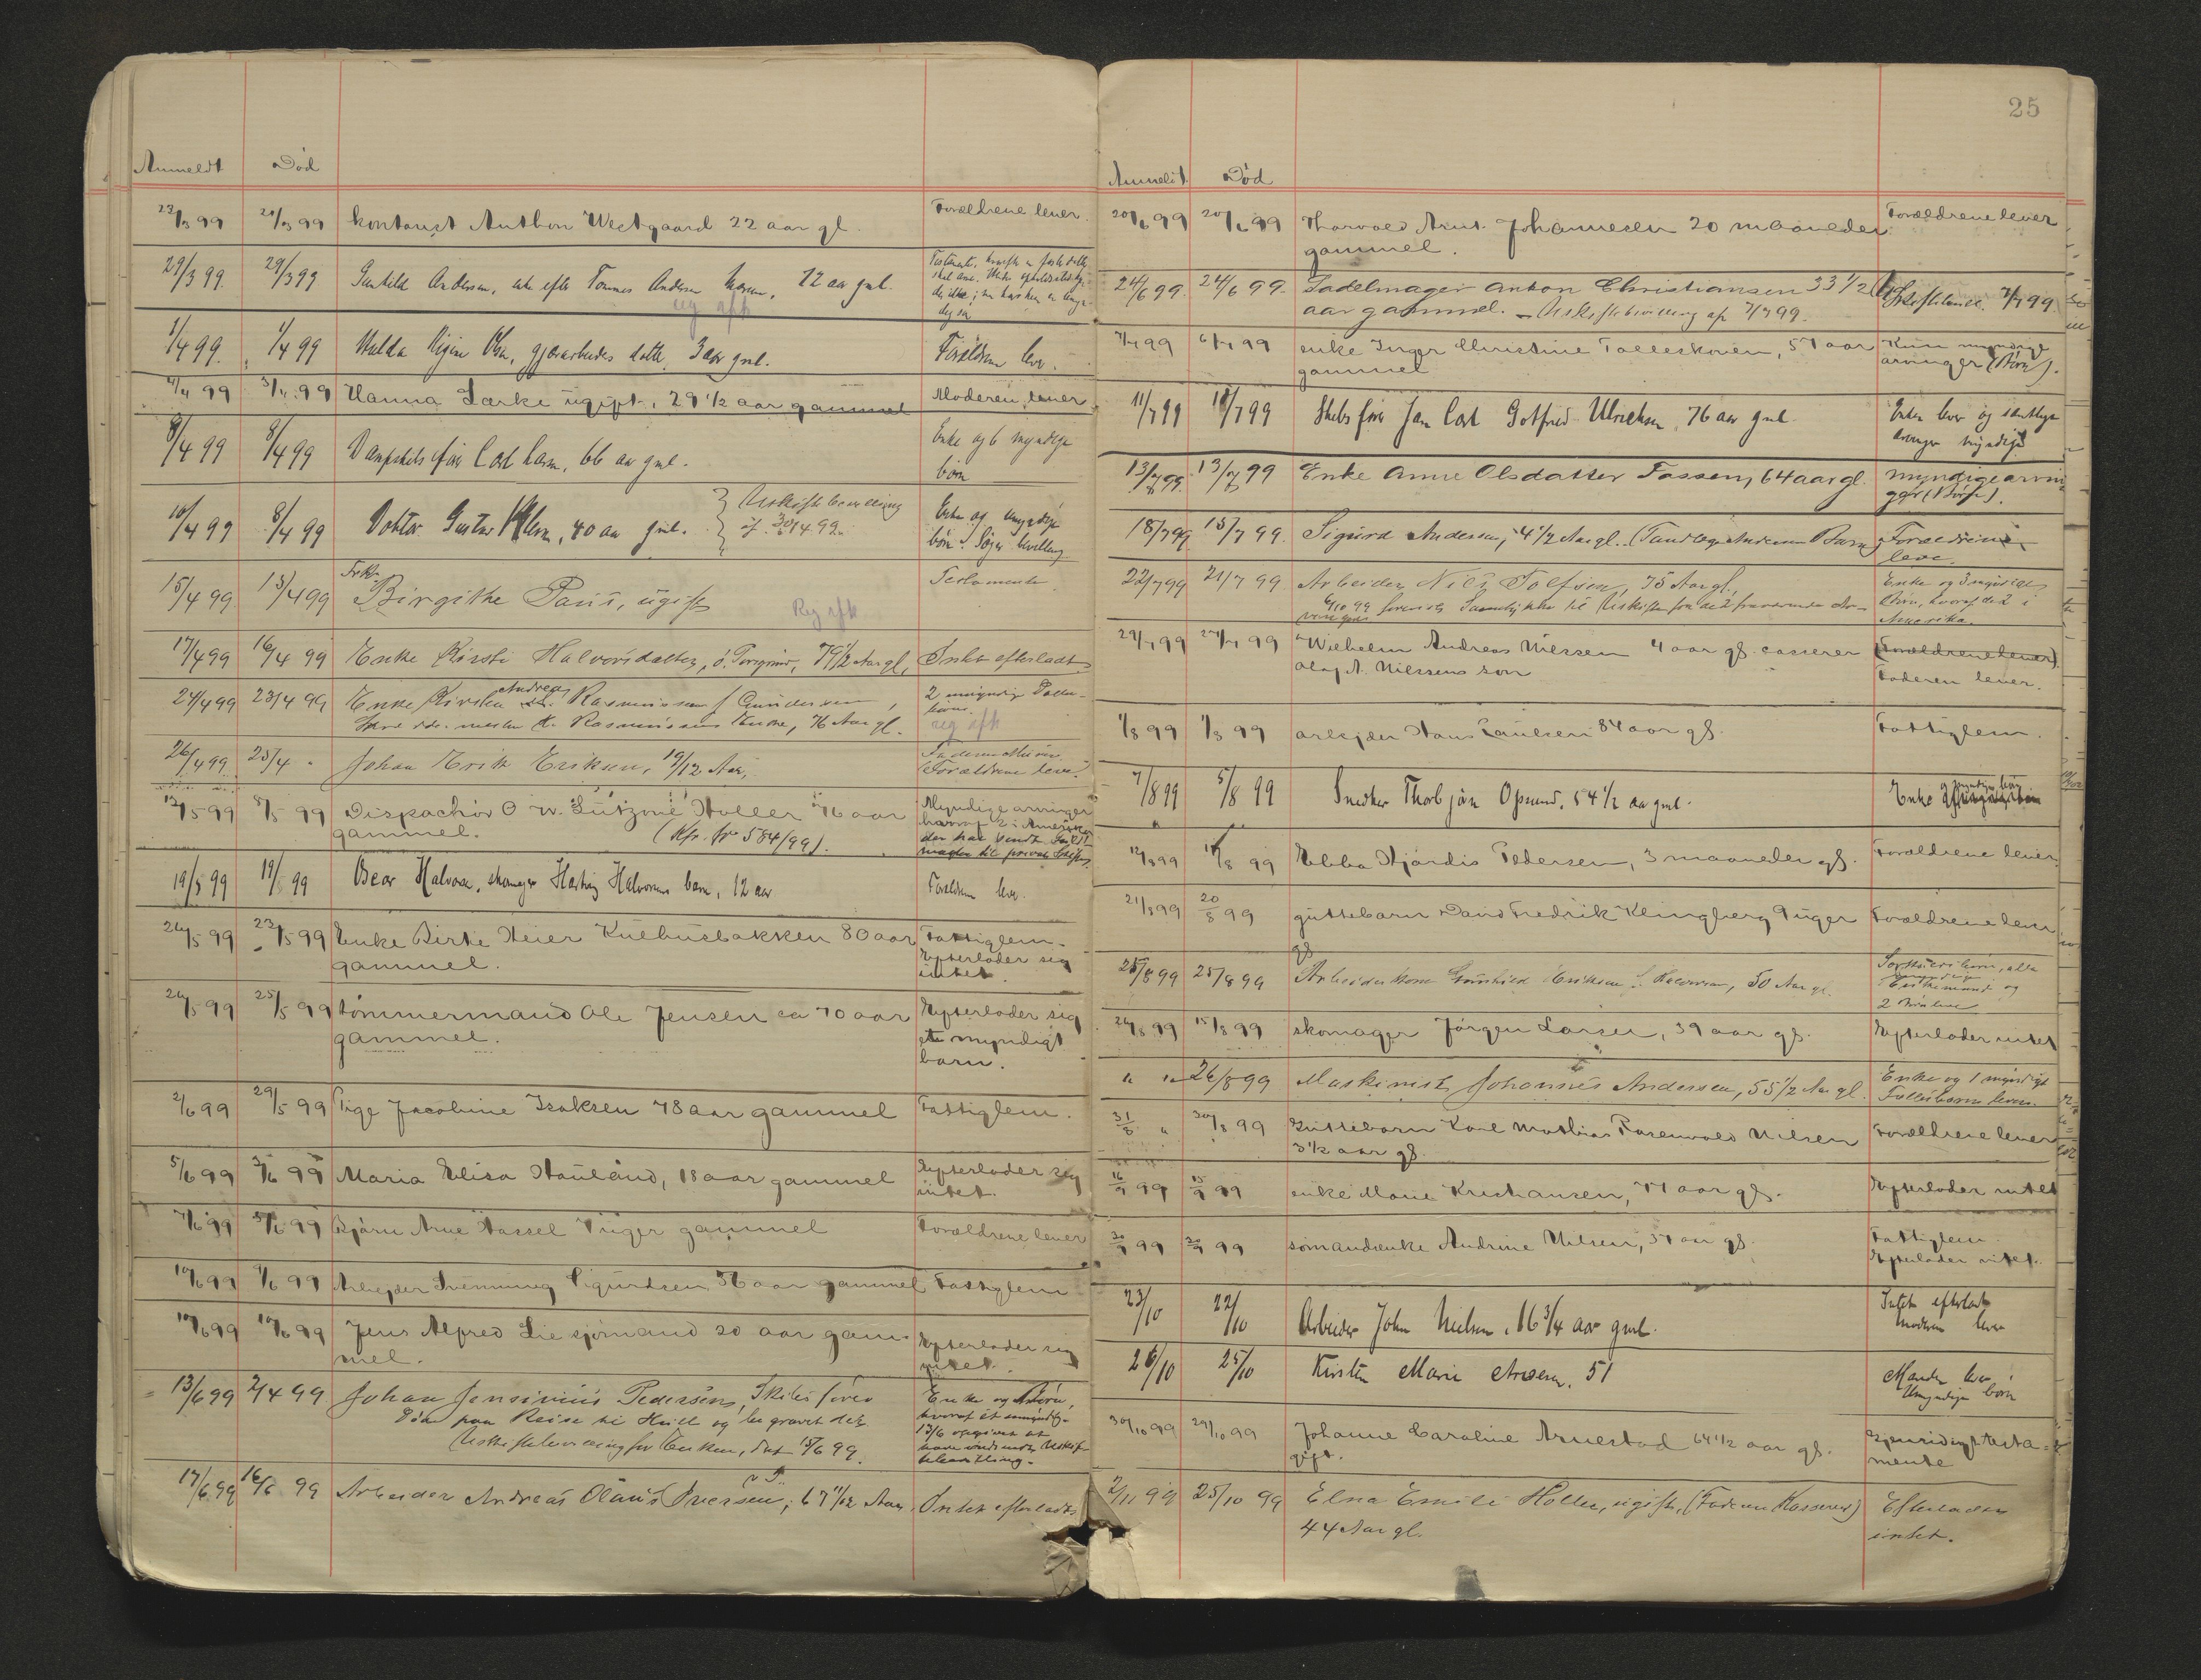 Anmeldt Død
22/3 99 21/3 99 kontorist Anthon Westgaard 22 aar gl. Forældrene lever.
29/3 99. 29/3 99 Gunhild Andersen, enke efter Tommes Andersen 72 aar gml.
reg afh
1/4 99. 1/4 99 Hulda Olsen, datter, 3 aar gml. Forældrene lever.
4/4 99 3/4 99 Hanna Larke ugift, 29 1/2 aar gammel Moderen lever
8/4 99 8/4 99 Dampskibsfører Carl Larsen, 66 aar gml. Enke og 6 myndige
børn
10/4 99 8/4 99 Doktor Gustav 40 aar gml. Uskiftebevilling
af 30/4 99. Enke og umyndige
børn. Søger bevilling
15/4 99 13/4 99 Frk.
Birgithe Paus, ugift Testamente
Reg afh
17/4 99 16/4 99 Enke Kirsti Halvorsdatter, 79 1/2 Aar gl. Intet efterladt
24/4 99 23/4 99 Enke Andrea Rasmussen f. Gundersen, 2 umyndige
Rasmussens Enke, 76 Aar gl.
reg afh
26/4 99 25/4 Johan Erik Eriksen, 10/12 Aar,
(Forældrene lever.)
12/5 99 8/5 99 Dispachør O. W. Lützow Holler 76 aar Myndige arvinger
gammel. (Kfr. fr 584/99). hvoraf 2 i Amerika
der har sendt
til privat skifte
19/5 99 19/5 99 Oscar Halvorsen, skomager Halvorsens barn, 12 aar Forældrene lever.
26/5 99 23/5 99 Enke Birte Heier Kuehusbakken 80 aar Fattiglem.
gammel. Efterlader sig
intet.
26/5 99 25/5 99 tømmermand Ole Jensen ca 70 aar Efterlader sig
gammel. et myndigt
barn.
2/6 99 29/5 99 Pige Jacobine Isaksen 78 aar gammel Fattiglem.
5/6 99 3/6 99 Maria Elisa Hauland, 18 aar gammel Efterlader sig
intet.
7/6 99 5/6 99 Bjarne Arne Hassel uger gammel Forældrene lever
10/6 99 9/6 99 Arbeider Svennung Sigurdsen 56 aar gammel Fattiglem
10/6 99 10/6 99 Jens Alfred Lie sjømand 20 aar gam- Efterlader sig
mel. intet.
13/6 99 2/4 99 Johan Jensinius Pedersen, Skibsfører Enke og Børn,
Døde paa Reise til Hull og begravet der hvoraf et umyndig.
Uskiftebevilling for Enken, dat 15/6 99.
17/6 99 16/6 99 Arbeider Andreas Olaus Iversen, 67 11/12 Aar. Intet efterladt
25
Anmeldt. Død
20/6 99 20/6 99 Thorvald Arnt Johannesen 20 maaneder Forældrene lever
gammel.
24/6 99. 24/6 99. Sadelmager Anton Christiansen 33 1/2 7/7 99.
aar gammel. Uskiftebevilling af 7/7 99.
7/7 99 6/7 99 enke Inger Christine Talleskoven, 57 aar Kun myndige
gammel arvinger (Børn).
11/7 99 10/7 99 Skibsfører Jan Carl Gotfred Ulrichsen, 76 aar gml. Enken lever og samtlige
arvinger myndige
13/7 99. 13/7 99 Enke Anne Olsdatter Fossen, 64 aar gl. myndige arvin-
ger (Børn).
18/7 99 15/7 99. Sigurd Andersen, 4 1/2 Aar gl. (Tandlæge Andersens Barn) Forældrene
lever.
22/7 99 21/7 99 Arbeider Nils Tolfsen, 75 Aar gl., Enke og 3 myndige
Børn, hvoraf de 2 i
Amerika.
29/7 99 27/7 99 Wilhelm Andreas Nilssen 4 aar gl. casserer (Forældrene lever).
Olaf A. Nilssens søn Faderen lever.
1/8 99 1/8 99 arbejder Hans Paulsen 84 aar gl. Fattiglem.
7/8 99 5/8 99 Snedker Thorbjørn Opsund, 54 1/2 aar gml. Enke
12/8 99 11/8 99 Ebba Hjørdis Pedersen, 3 maaneder gl. Forældrene lever.
21/8 99 20/8 99 guttebarn David Fredrik Klingberg 9 uger Forældrene lever
gl
25/8 99 25/8 99 Arbeiderkone Gunhild Eriksen f. Halvorsen, 50 Aar gl. alle
myndige
Enkemand og
26/8 99 15/8 99 skomager Jørgen Larsen, 39 aar gl. Efterlader intet
" " 26/8 99 Maskinist Johannes Andersen, 55 1/2 Aar gl. Enke og 1 myndigt
Fællesbarn lever.
31/8 " 30/8 99 Guttebarn Karl Mathias Rosenvold Nilsen Forældrene lever
3 1/2 aar gl.
16/9 99 15/9 99 enke Marie Kristiansen, 77 aar gl. Efterlader intet
20/9 99 20/9 99 sømandsenke Andrine Nilsen, 57 aar gl. Fattiglem.
Efterlader intet.
23/10 22/10 Arbeider John Nielsen, 16 3/4 aar gml. Intet efterladt
Moderen lever
26/10 25/10 Kirsten Marie Aresen, 51 Manden lever
Umyndige børn
30/10 99 29/10 99 Johanne Caroline Arnestad 64 1/2 aar gl. testa-
gift. mente
2/11 99 25/10 99 Elna Emilie Holler, ugift, (Faderen Kasserer) Efterlader
44 Aar gl. intet.